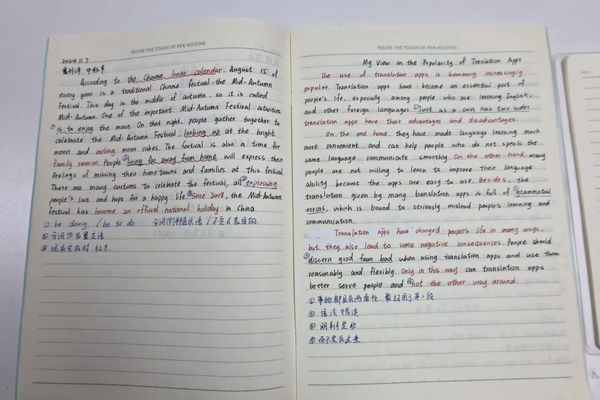 RELIVE THE TOUCH OF PEN HOLDING
2024.11.7
翻译 中秋节
According to the Chinese lunar calendar, August 15 of
every year is a traditional Chinese festival - the Mid-Autumn
Festival. This day is the middle of autumn, so it is called
Mid-Autumn. One of the important Mid-Autumn Festival activities
① is to enjoy the moon. On that night, people gather together to
celebrate the Mid-Autumn Festival, looking up at the bright
moon and eating moon cakes. The festival is also a time for
family reunion. People ② living far away from home will express their
feelings of missing their hometowns and families at this festival.
There are many customs to celebrate the festival, all expressing
people's love and hope for a happy life. ③ Since 2008, the Mid-Autumn
festival has become an official national holiday in China.
① be doing / be to do
② 分词作后置定语
③ 现在完成时 标志
RELIVE THE TOUCH OF PEN HOLDING
My View on the Popularity of Translation Apps
The use of translation apps is becoming increasingly
popular. Translation apps have become an essential part of
people's life, especially among people who are learning English
and other foreign languages. ① Just as a coin has two sides,
translation apps have their advantages and disadvantages.
On the one hand, they have made language learning much
more convenient and can help people who do not speak the
same language communicate smoothly. On the other hand, many
people are not willing to learn to improve their language
ability because the apps are easy to use. Besides, the
translation given by many translation apps is full of ② grammatical
errors, which is bound to seriously mislead people's learning and
communication.
Translation apps have changed people's life in many ways,
but they also lead to some negative consequences. People should
③ discern good from bad when using translation apps and use them
reasonably and flexibly. Only in this way can translation apps
better serve people and ④ not the other way around.
① 事物都具有两面性
② 语法错误
③ 明辨是非
④ 而不是反过来